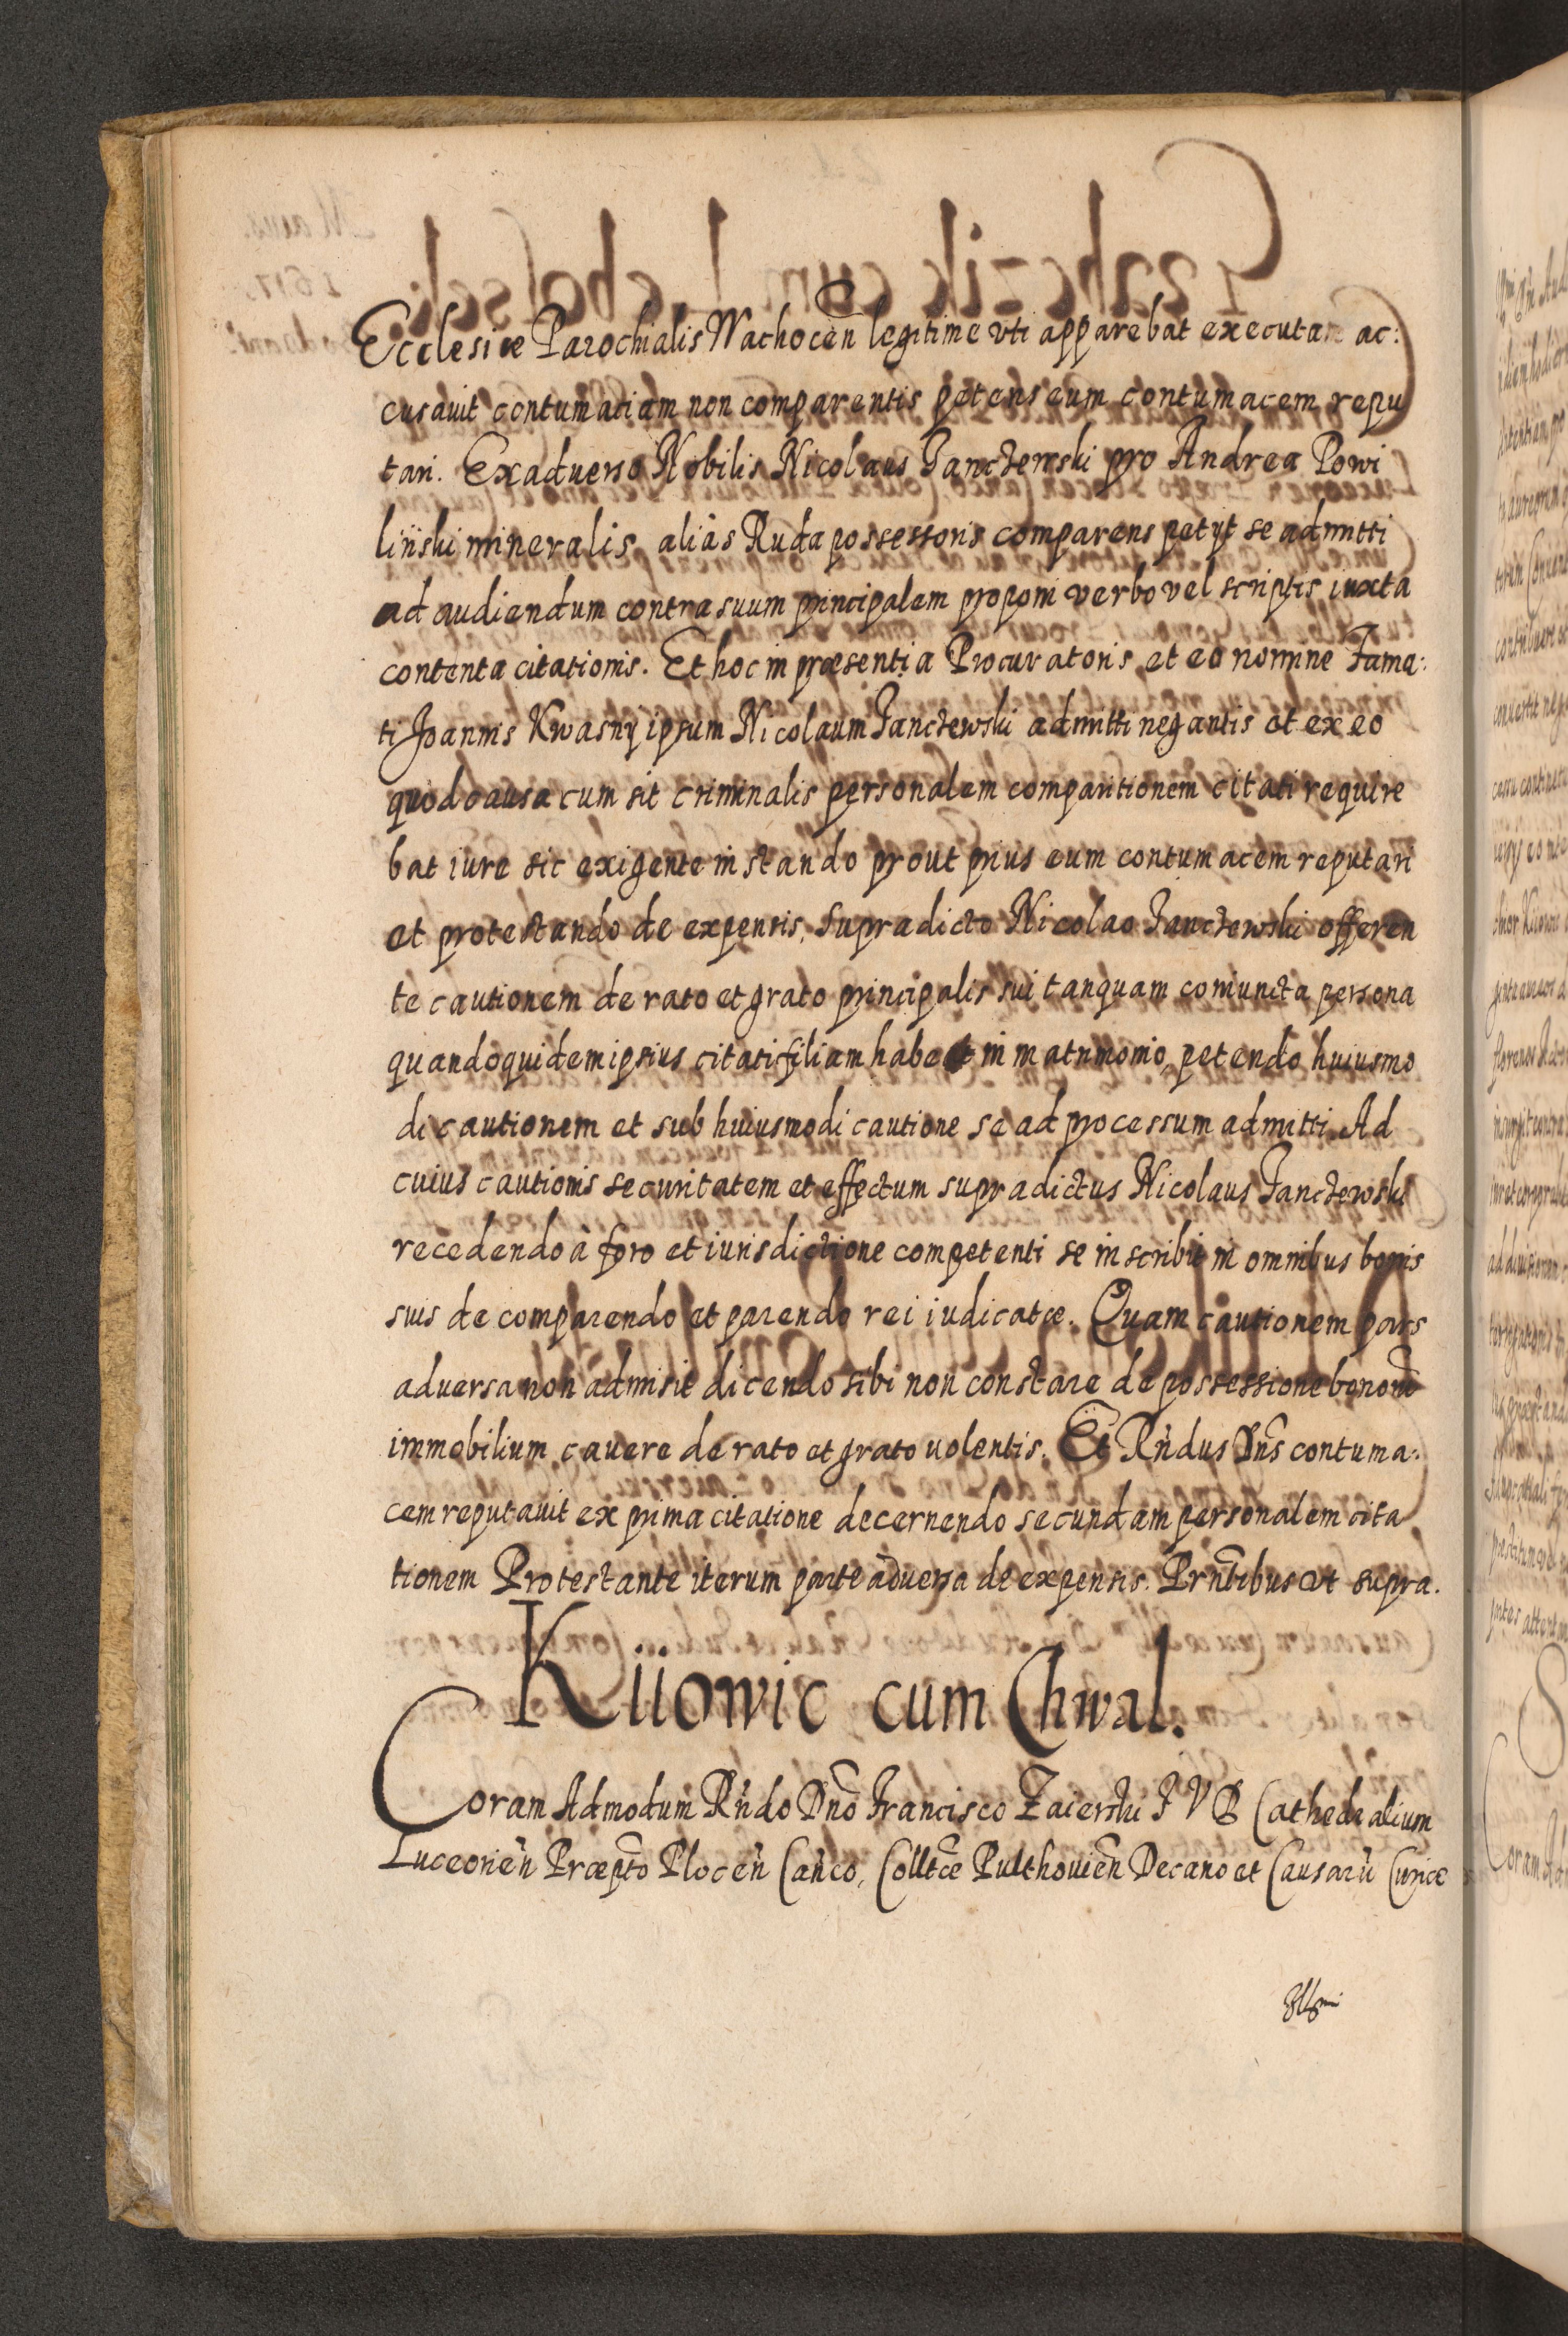 Ecclesiæ Parochialis Wachocen̄ legitime vti apparebat executam ac:
cusauit contumatiam non comparentis petens eum contumacem repu
tari. Ex aduerso Nobilis Nicolaus Janczewski pro Andrea Powi
liński mineralis aliâs Ruda possessoris comparens petijt se admitti
ad audiendum contra suum principalem proponi verbo vel scriptis iuxta
contenta citationis. Et hoc in præsentia Procuratoris et eo nomine Fama:
ti Joannis Kwasny ipsum Nicolaum Janczewski admitti negantis et ex eo
quod causa cum sit criminalis personalem comparitionem citati require
bat iure sic exigente instando prout prius eum contumacem reputari
et protestando de expensis, supradicto Nicolao Janczewski offeren
te cautionem de rato et grato principalis sui tanquam coniuncta persona
quandoquidem ipsius citati filiam habet in matrimonio, petendo huiusmo
di cautionem et sub huiusmodi cautione se ad processum admitti. Ad
cuius cautionis securitatem et effectum supradictus Nicolaus Janczewski
recedendo à foro et iurisdictione competenti se inscribit in omnibus bonis
suis de comparendo et parendo rei iudicatæ. Quam cautionem pars
aduersa non admisit dicendo sibi non constare de possessione bonorū
immobilium cauere de rato et grato uolentis. Et Rn̄dus Dn̄s contuma:
cem reputauit ex prima citatione decernendo secundam personalem cita
tionem Protestante iterum parte aduersa de expensis. Prn̄tibus vt supra.
Kiiowic cum Chwal.
Coram Admodum Rn̄do Dn̄o Francisco Zaierski J V D Cathedralium
Luceorien̄ Præpto Plocen̄ Can̄co, Colltæ Pulthouien̄ Decano et Causarū Curiæ